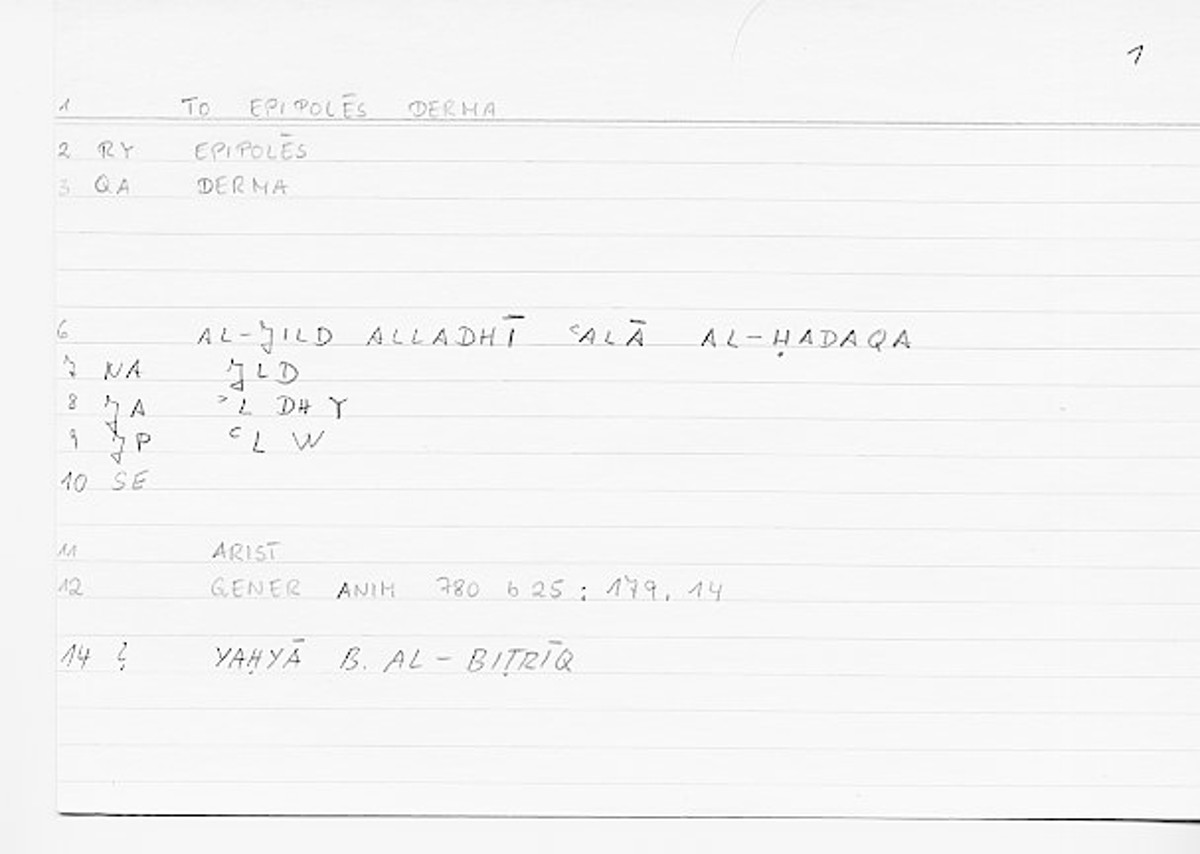 1
1 TO EPIPOLĒS DERMA
2 RY EPIPOLĒS
3 QA DERMA
6 AL-JILD ALLADHĪ ʿALĀ AL-ḤADAQA
7 NA JLD
8 JA ʾL DHY
9 JP ʿL W
10 SE
11 ARIST
12 GENER ANIM 780 b 25 : 179, 14
14 ? YAḤYĀ B. AL-BIṬRĪQ